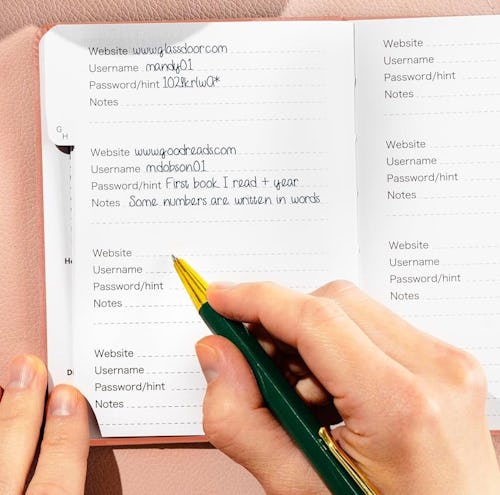 Website www.glassdoor.com
Username mandy01
Password/hint 102fkrlwQ*
Notes
G
H
Website www.goodreads.com
Username mdobson01
Password/hint First book I read + year
Notes Some numbers are written in words
Website
Username
Password/hint
Notes
Website
Username
Password/hint
Notes
Website
Username
Password/hint
Notes
Website
Username
Password/hint
Notes
Website
Username
Password/hint
Notes